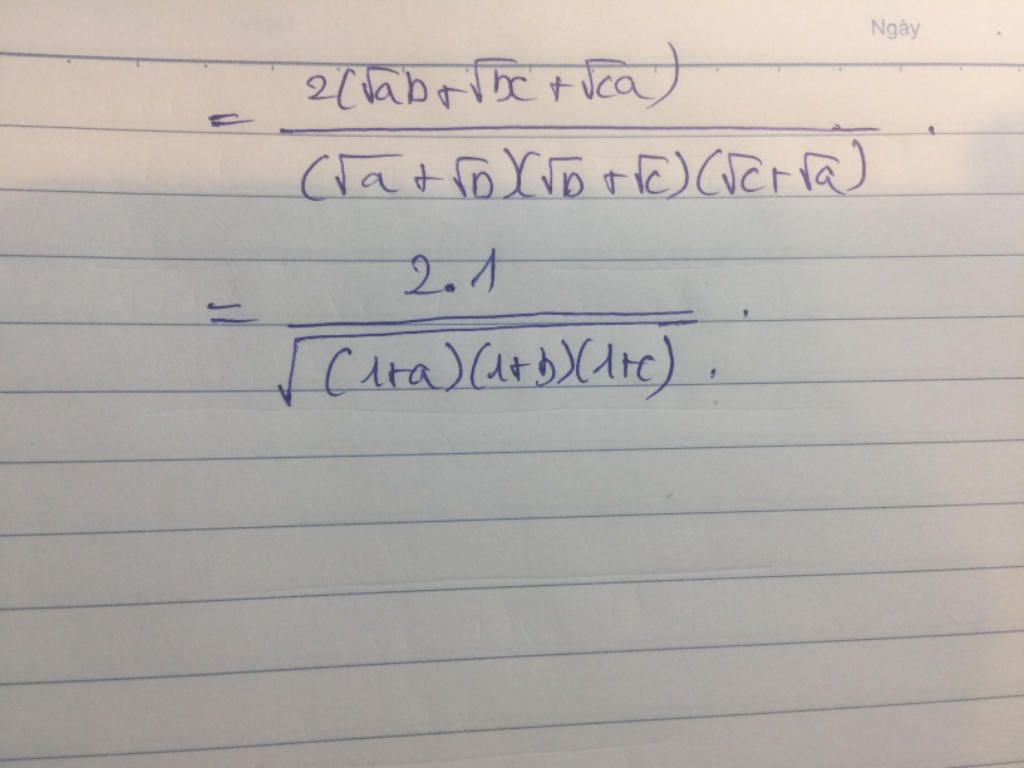 Ngày
= 2(√ab + √bc + √ca) / (√a + √b)(√b + √c)(√c + √a) .
= 2.1 / √(1+a)(1+b)(1+c) .